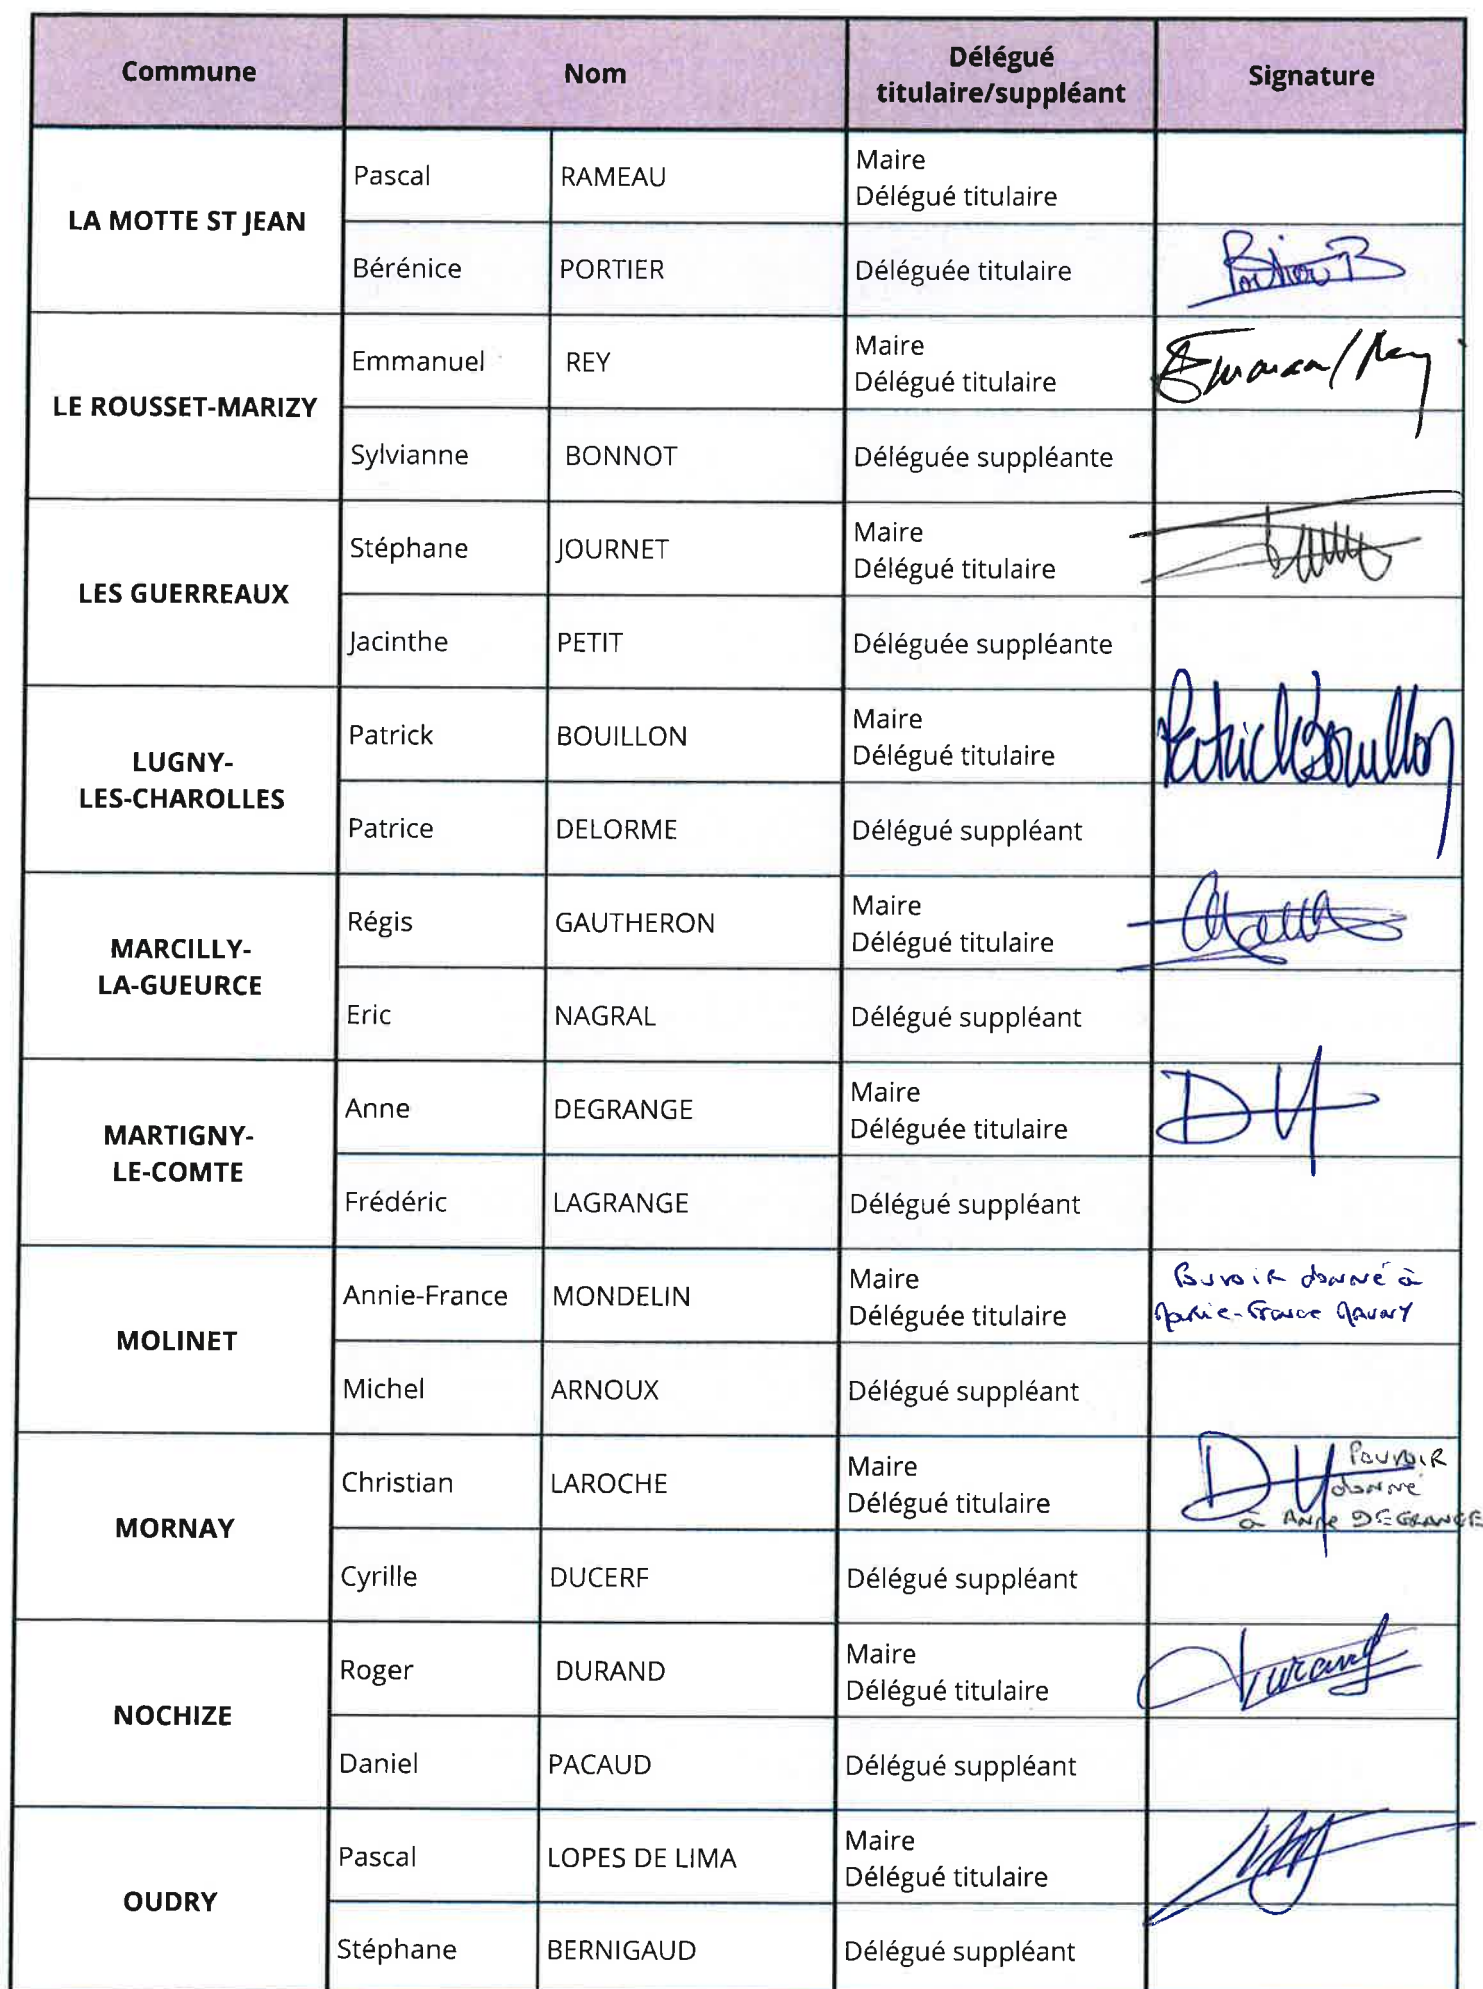 Commune Nom Délégué titulaire/suppléant Signature
LA MOTTE ST JEAN
Pascal RAMEAU Maire
Délégué titulaire
Bérénice PORTIER Déléguée titulaire Portier B
LE ROUSSET-MARIZY
Emmanuel REY Maire
Délégué titulaire Emmanuel Rey
Sylvianne BONNOT Déléguée suppléante
LES GUERREAUX
Stéphane JOURNET Maire
Délégué titulaire
Jacinthe PETIT Déléguée suppléante
LUGNY-
LES-CHAROLLES
Patrick BOUILLON Maire
Délégué titulaire Patrick Bouillon
Patrice DELORME Délégué suppléant
MARCILLY-
LA-GUEURCE
Régis GAUTHERON Maire
Délégué titulaire
Eric NAGRAL Délégué suppléant
MARTIGNY-
LE-COMTE
Anne DEGRANGE Maire
Déléguée titulaire
Frédéric LAGRANGE Délégué suppléant
MOLINET
Annie-France MONDELIN Maire
Déléguée titulaire
Pouvoir donné à
Marie-France
Michel ARNOUX Délégué suppléant
MORNAY
Christian LAROCHE Maire
Délégué titulaire
POUVOIR
donné
à Anne DEGRANGE
Cyrille DUCERF Délégué suppléant
NOCHIZE
Roger DURAND Maire
Délégué titulaire Durand
Daniel PACAUD Délégué suppléant
OUDRY
Pascal LOPES DE LIMA Maire
Délégué titulaire
Stéphane BERNIGAUD Délégué suppléant